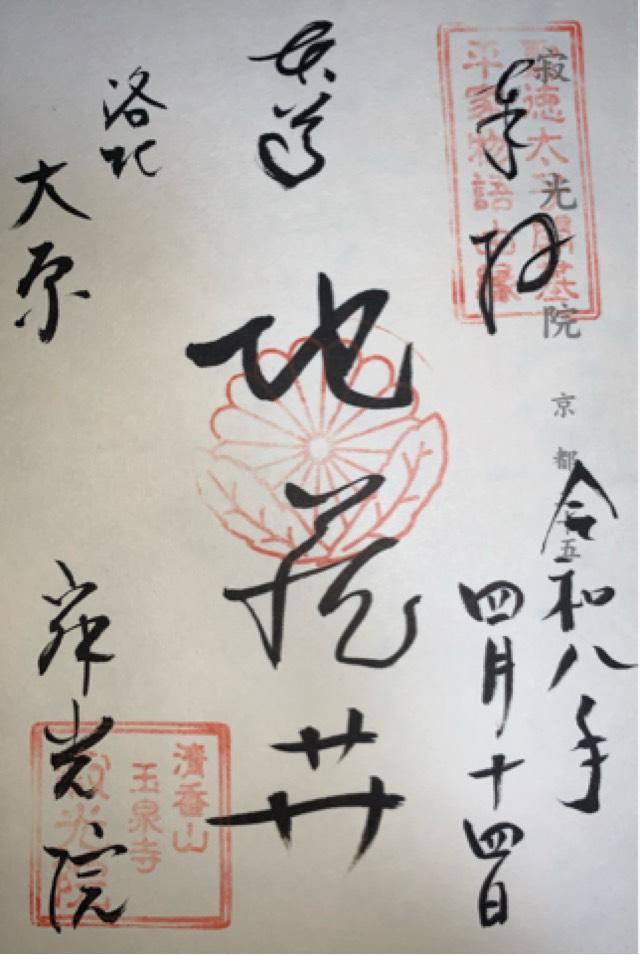 寂光院 京都
聖徳太子開基
平家物語由縁
奉拝
令和八年
四月十四日
本尊
地蔵𦬇
洛北
大原
寂光院
清香山
玉泉寺
寂光院